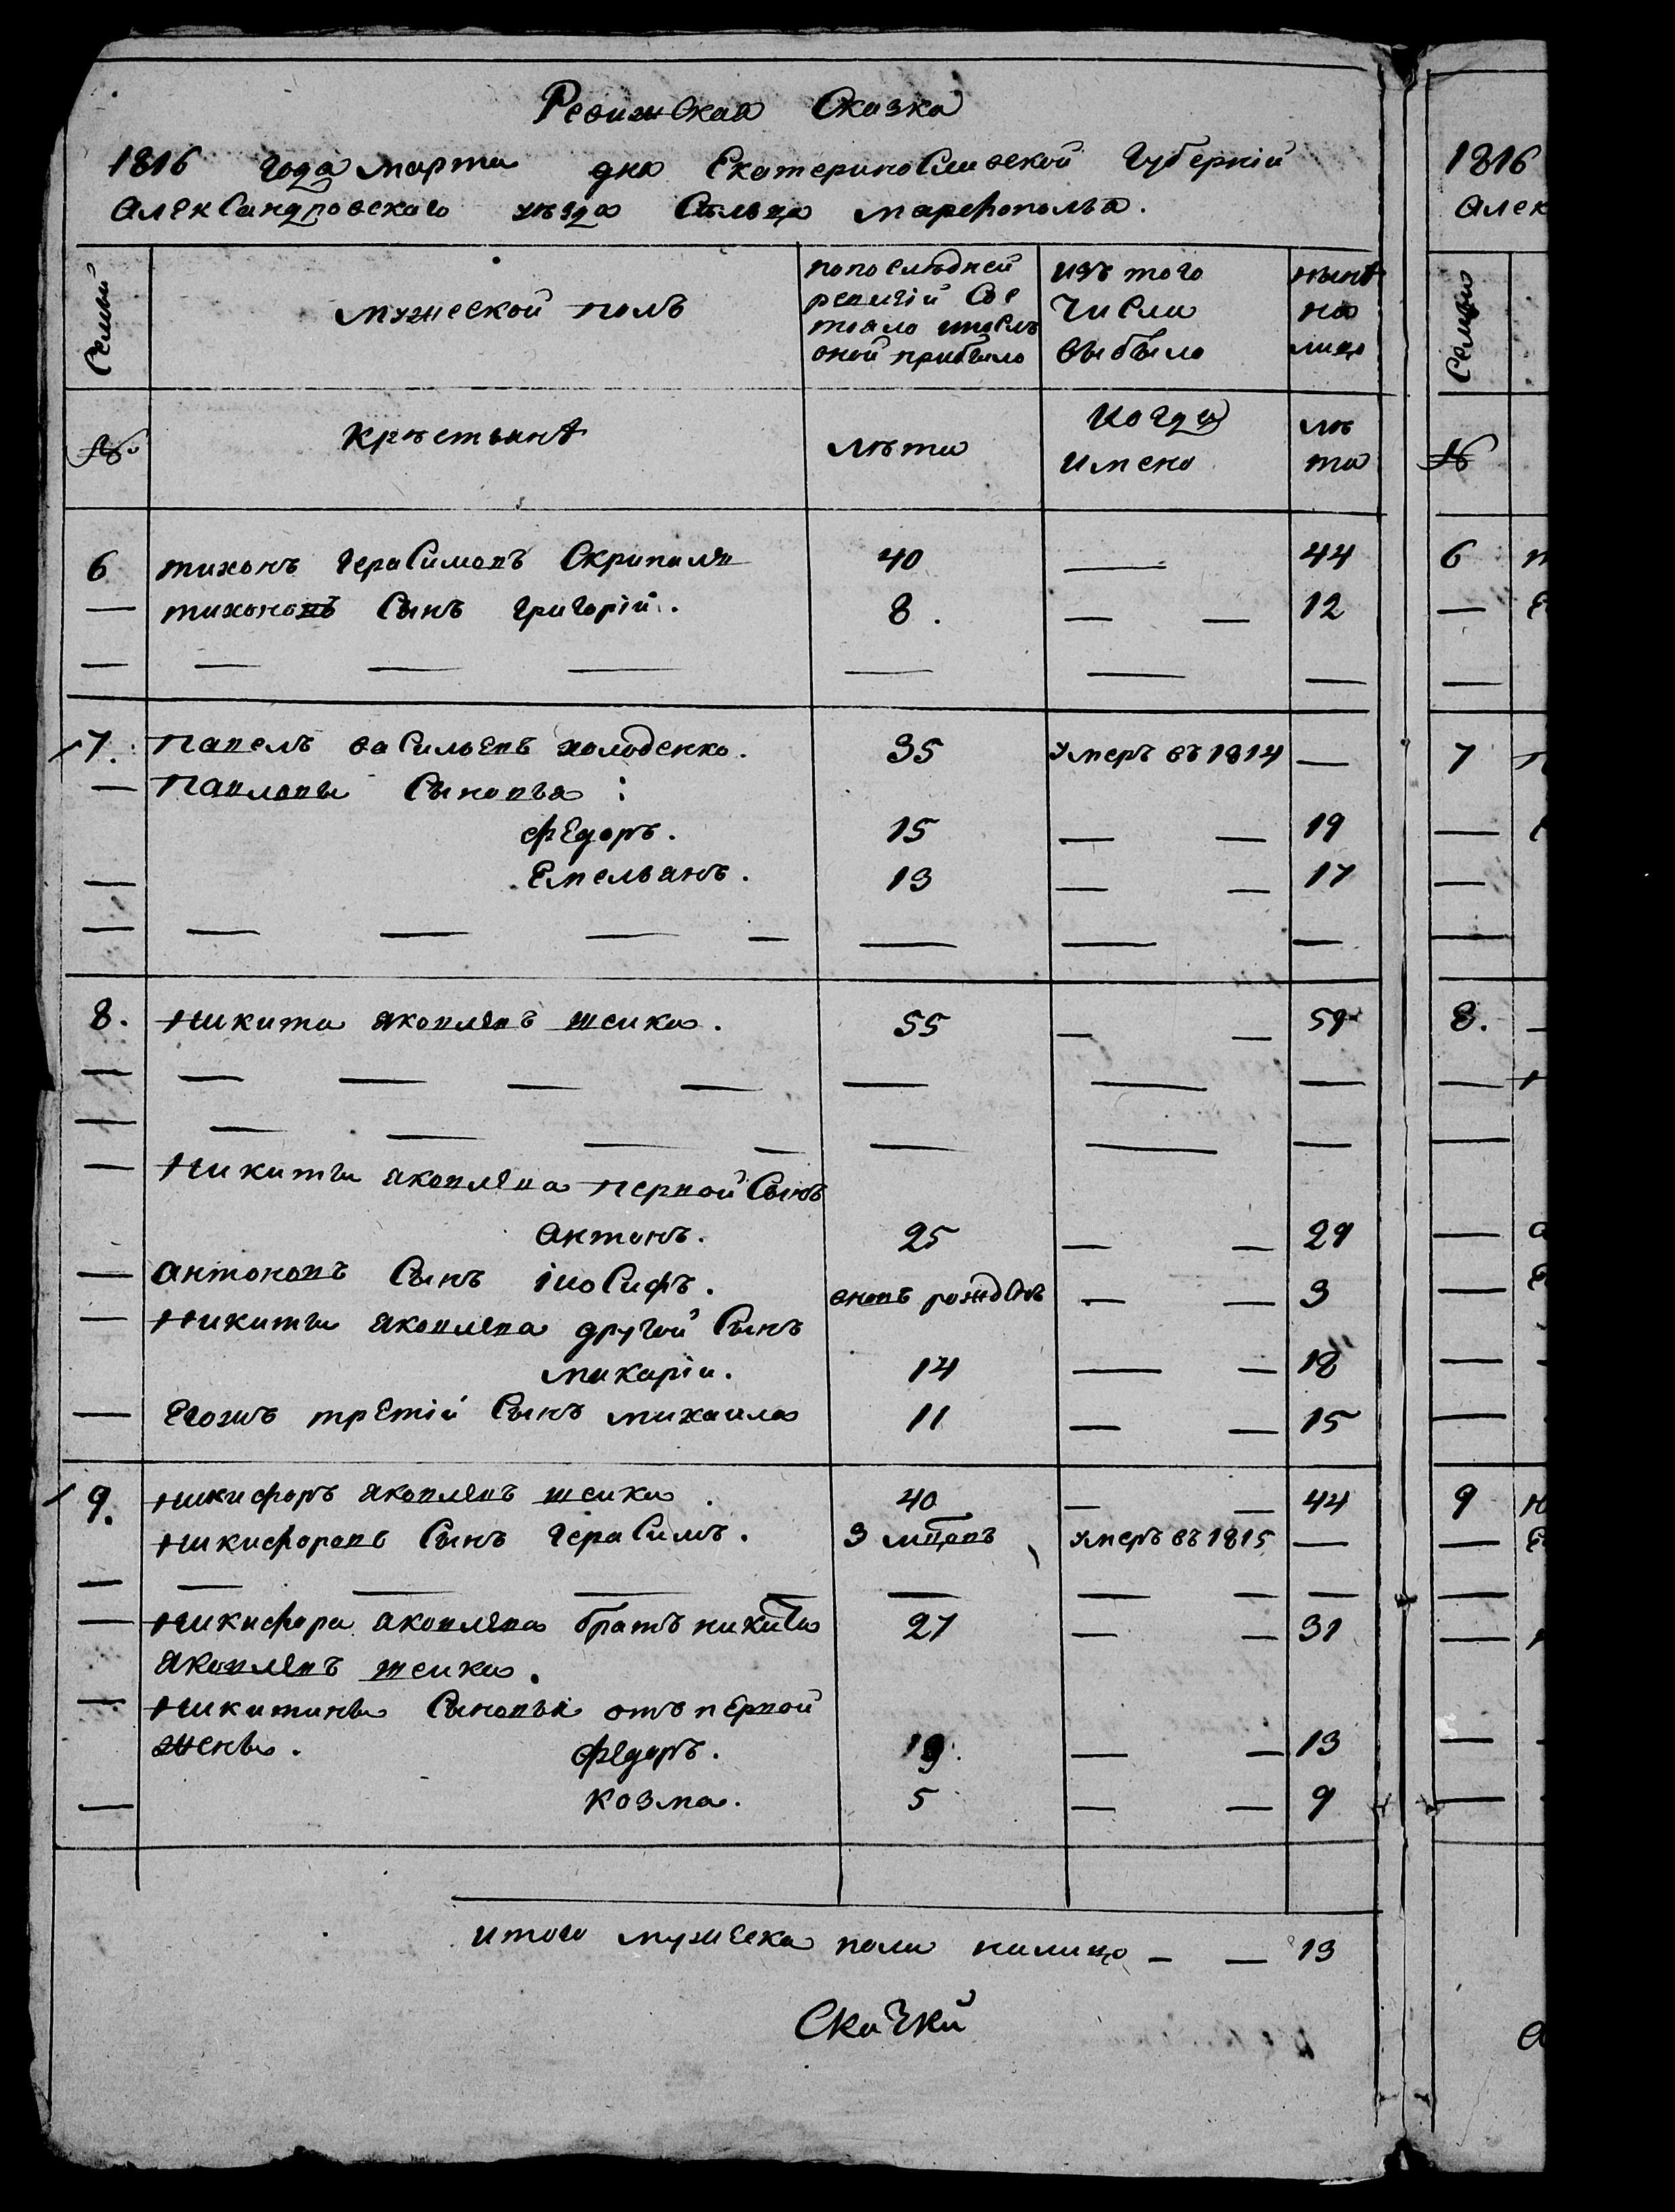 Ревижская Сказка
1816 года марта дня Екатеринославской Губерніи
Александровскаго уѣзда Сѣльца марефополья.
Семьи
мужеской полъ
попоследней ревизіи сос тояло ипослѣ оной прибыло
изъ того числа выбыло
нынѣ на лицо
№.
крѣстьянѣ
лѣта
когда имено
лѣ та
6 тихонъ герасимовъ Скрипаля 40 — 44
— тихоновъ Сынъ григорій. 8. — — 12
7. Павелъ васильевъ холоденко. 35 Умеръ въ 1814 —
— Павловы Сыновья:
фЕдоръ. 15 — — 19
— Емельянъ. 13 — — 17
8. Никита яковлевъ шейка. 55 — — 59
— Никиты яковлева первой Сынъ
антонъ. 25 — — 29
— антоновъ Сынъ іиосифъ. вновь рожденъ — — 3
— Никиты яковлева другой Сынъ
макаріи. 14 — — 18
— Егожъ трЕтій Сынъ михаила 11 — — 15
9. Никифоръ яковлевъ шейка. 40 — — 44
Никифоровъ Сынъ герасимъ. 3 мцовъ умеръ въ 1815 —
— Никифора яковлева братъ никита 27 — — 31
яковлевъ шейка.
— Никитины Сыновья отъ пЕрвой
жены. фЕдоръ. 19. — — 13
— козма. 5 — — 9
итого мужеска пола налицо — — 13
Ска Зки
1816
Алек
Семьи
№
6
7
8.
9